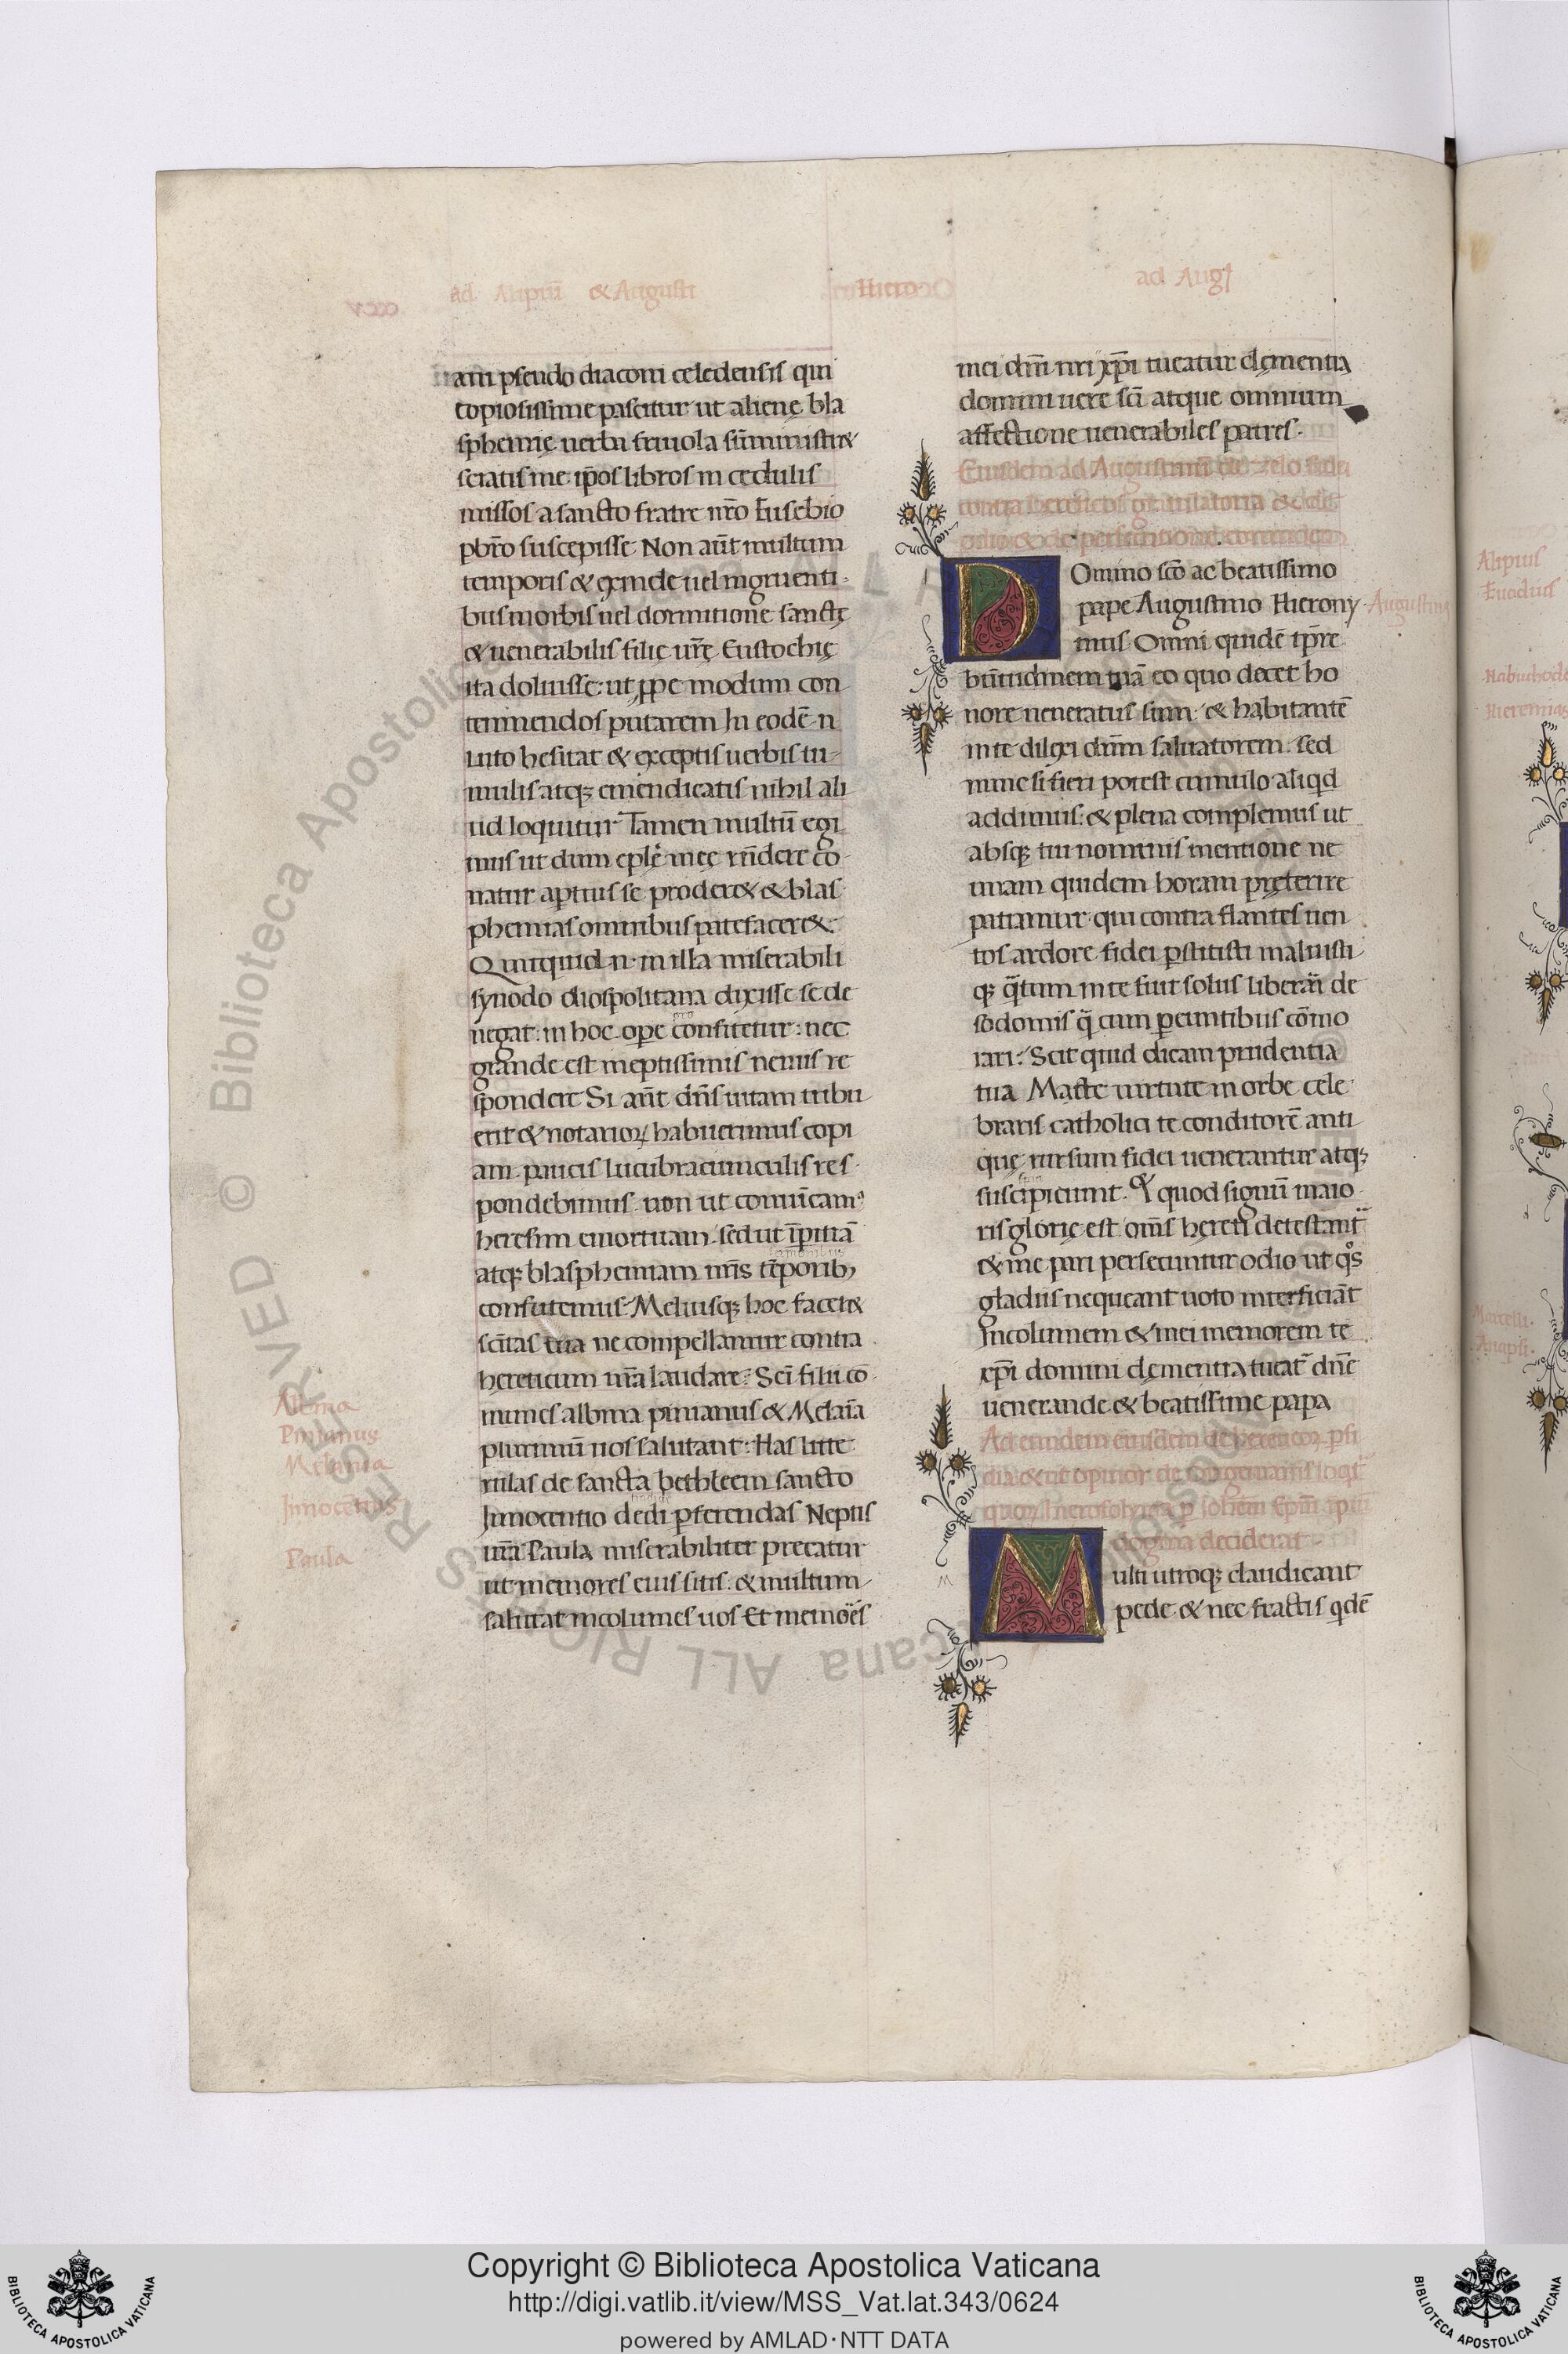 ad Alipiū & Augusti
Hiero
ad Augꝭ
am pseudo diaconi celedensis qui
copiosissime pascitur ut alienę bla
sphemię uerba friuola sūministr&
sciatis me ip̄os libros in cedulis
missos a sancto fratre nr̄o Eusebio
pbr̄o suscepisse Non aūt multum
temporis & exinde uel ingruenti
bus morbis uel dormitione sanctę
& uenerabilis filię ur̄ę Eustochię
ita doluisse: ut ꝓpe modum con
tennendos putarem In eodē n
luto hesitat & exceptis uerbis tu
mulis atqꝫ emendicatis nihil ali
ud loquitur Tamen multū egi
mus ut dum eplę meę rn̄dere co
natur aptius se proder& & blas
phemias omnibus patefacer&
Quicquid n̄ in illa miserabili
synodo diospolitana dixisse se de
negat: in hoc ope confitetur: nec
grande est ineptissimis neniis re
spondere Si aūt dn̄s uitam tribu
erit & notarioꝝ habuerimus copi
am paucis lucubraciunculis res
pondebimus non ut conuīcamꝰ
heresim emortuam sed ut īpitiā
atqꝫ blasphemiam nr̄is tēporibꝫ
confutemus Meliusqꝫ hoc facer&
sc̄itas tua ne compellamur contra
hereticum nr̄a laudare Sc̄i filii cō
munes albina pinianus & Melaīa
plurimū uos salutant: Has litte
rulas de sancta bethleem sancto
Innocentio dedi ꝑferendas Neptis
ur̄a Paula miserabiliter precatur
ut memores eius sitis & multum
salutat incolumes uos Et memōes
Albina
Pinianus
Melania
Innocentius
Paula
mei dn̄i nr̄i xp̄i tueatur clęmentia
domini uere sc̄i atque omnium
affectione uenerabiles patres
Eiusdem ad Augustinū de zelo fidei
contra hereticos gratulatoria
Omino sc̄o ac beatissimo
pape Augustino Hierony
mus Omni quidē tp̄re
bt̄itudinem tuā eo quo decet ho
nore ueneratus sum & habitantē
in te dilexi dn̄m saluatorem sed
nunc si fieri potest cumulo aliqd
addimus & plena complemus ut
absqꝫ tui nominis mentione ne
unam quidem horam pręterire
patiamur qui contra flantes uen
tos ardore fidei ꝑstitisti maluisti
qꝫ q̄tum in te fuit solus liberari de
sodomis q̄ cum ꝑeuntibus cōmo
rari Scit quid dicam prudentia
tua Macte uirtute in orbe cele
braris catholici te conditorē anti
quę rursum fidei uenerantur atqꝫ
suscipiunt & quod signū maio
ris glorię est om̄s hęreti detestant
& me pari persecuntur odio ut qͦs
gladiis nequeant uoto interficiāt
Incolumem & mei memorem te
xp̄i domini clęmentia tueat dn̄e
uenerande & beatissime papa
Augustin
Ad eundem eiusdem de hereticoꝝ ꝑfi
dia & ut opinor de origenianis loqt
dogma deciderat
ulti utroqꝫ claudicant
pede & nec fractis qdē
Alipius
Euodius
Nabuchodo
Hieremias
Marcelli
Anapsi
Copyright © Biblioteca Apostolica Vaticana
http://digi.vatlib.it/view/MSS_Vat.lat.343/0624
powered by AMLAD·NTT DATA
BIBLIOTECA APOSTOLICA VATICANA
BIBLIOTECA APOSTOLICA VATICANA